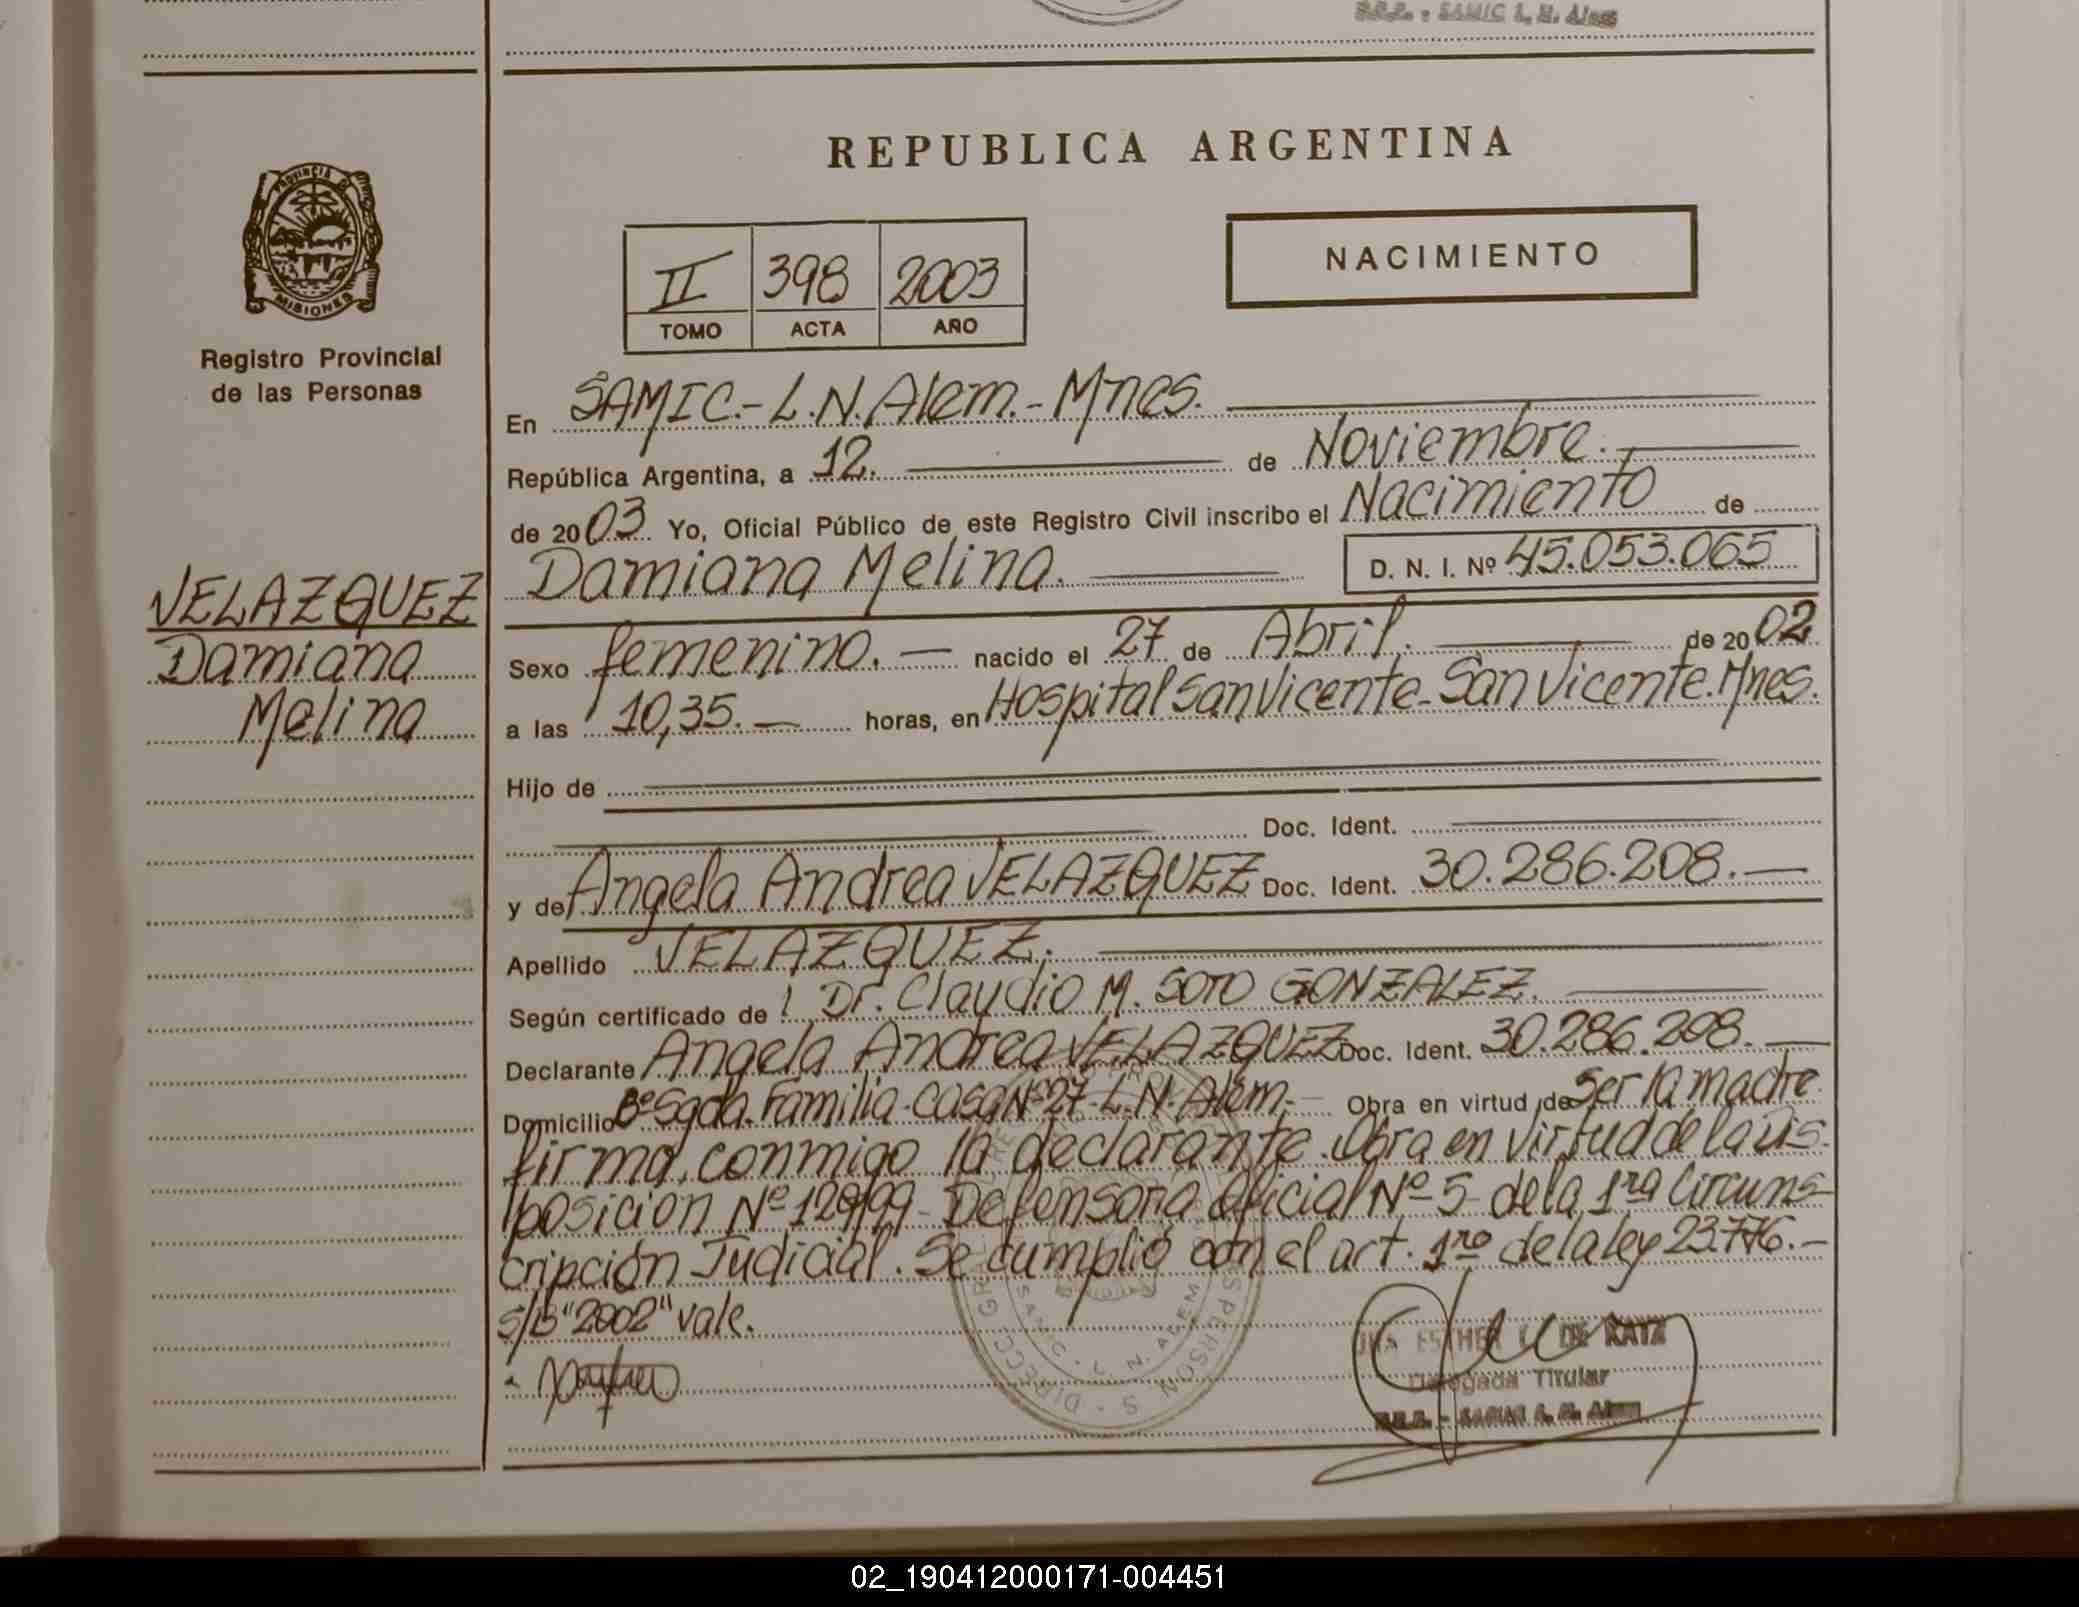 S.R.P. - SAMIC L. N. Alem
REPUBLICA ARGENTINA
PROVINCIA DE
MISIONES
Registro Provincial
de las Personas
II 398 2003
TOMO ACTA AÑO
NACIMIENTO
En SAMIC.- L.N. Alem.- Mnes.
República Argentina, a 12. de Noviembre.
de 2003 Yo, Oficial Público de este Registro Civil inscribo el Nacimiento de
Damiana Melina. D. N. I. Nº 45.053.065
VELAZQUEZ
Damiana
Melina
Sexo femenino. nacido el 27 de Abril. de 2002
a las 10,35. horas, en Hospital San Vicente - San Vicente. Mnes.
Hijo de
Doc. Ident.
y de Angela Andrea VELAZQUEZ Doc. Ident. 30.286.208.
Apellido VELAZQUEZ.
Según certificado de Dr. Claudio M. SOTO GONZALEZ.
Declarante Angela Andrea VELAZQUEZ Doc. Ident. 30.286.208.
Domicilio Bº Sgda. Familia - Casa Nº 27 - L.N. Alem. Obra en virtud de Ser la madre
firma, conmigo la declarante. Obra en virtud de la Dis-
posición Nº Defensoría Oficial Nº 5 de la 1ra Circuns-
cripción Judicial. Se cumplió con el art. 1ro de la ley 23.776.-
S/B "2002" vale.
ESTHER DE KATZ
Delegada Titular
SAMIC L. N. Alem
SAMIC - L. N. ALEM
02_190412000171-004451